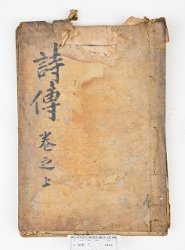 詩傳
卷之上